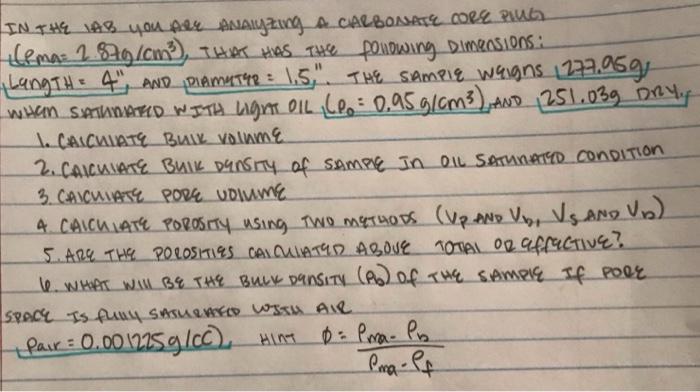 IN THE LAB YOU ARE ANALYZING A CARBONATE CORE PLUG
(ρma = 2.87g/cm³), THAT HAS THE FOLLOWING DIMENSIONS:
LENGTH = 4", AND DIAMETER = 1.5". THE SAMPLE WEIGHS 277.95g
WHEN SATURATED WITH LIGHT OIL (ρo = 0.95 g/cm³), AND 251.03g DRY.
1. CALCULATE BULK VOLUME
2. CALCULATE BULK DENSITY OF SAMPLE IN OIL SATURATED CONDITION
3. CALCULATE PORE VOLUME
4. CALCULATE POROSITY USING TWO METHODS (Vp AND Vb, Vs AND Vb)
5. ARE THE POROSITIES CALCULATED ABOVE TOTAL OR EFFECTIVE?
6. WHAT WILL BE THE BULK DENSITY (ρb) OF THE SAMPLE IF PORE
SPACE IS FULLY SATURATED WITH AIR
(ρair = 0.001225g/cc), HINT Φ = ρma - ρb
ρma - ρf